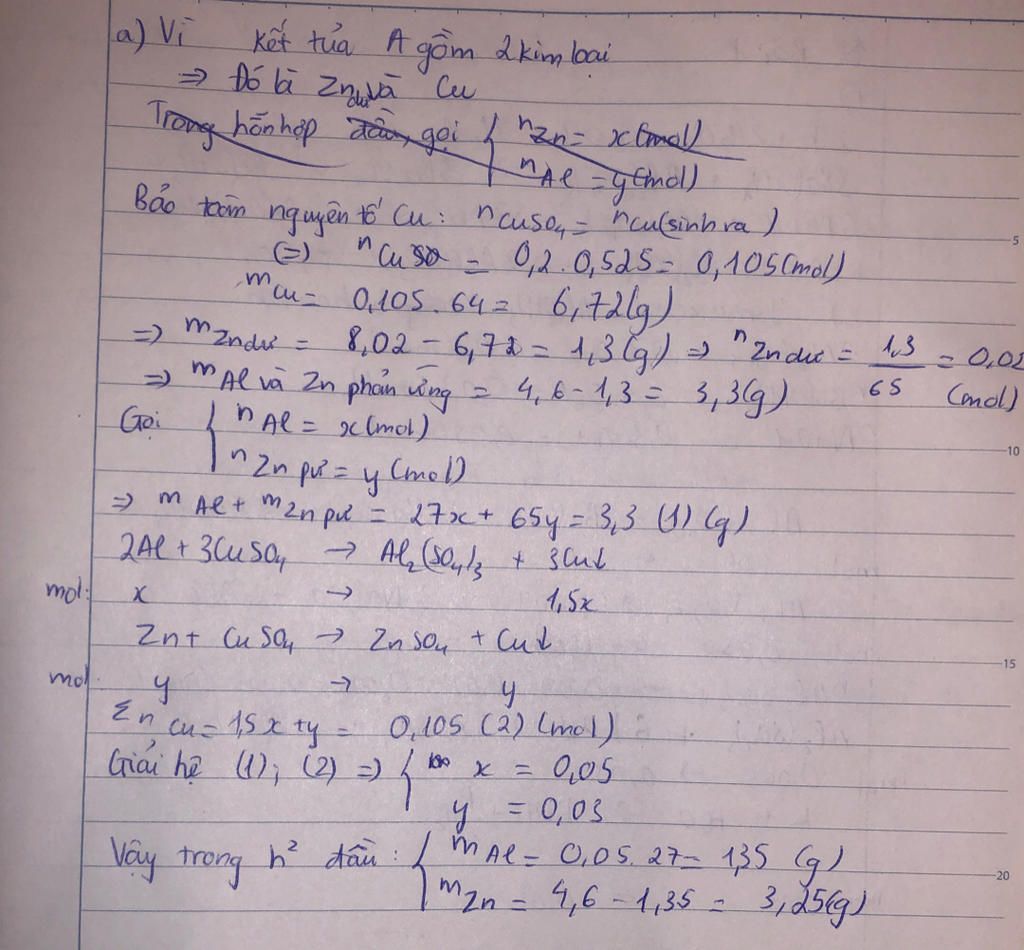 a) Vì kết tủa A gồm 2 kim loại
⇒ Đó là Zn dư và Cu
Trong hỗn hợp đầu, gọi { nZn = x(mol)
nAl = y(mol)
Bảo toàn nguyên tố Cu: nCuSO₄ = nCu(sinh ra)
(=) nCu = 0,2.0,525 = 0,105(mol)
mCu = 0,105.64 = 6,72(g)
⇒ mZn dư = 8,02 - 6,72 = 1,3(g) ⇒ nZn dư = 1,3/65 = 0,02 (mol)
⇒ mAl và Zn phản ứng = 4,6 - 1,3 = 3,3(g)
Gọi { nAl = x(mol)
nZn pư = y(mol)
⇒ mAl + mZn pư = 27x + 65y = 3,3 (1) (g)
2Al + 3CuSO₄ → Al₂(SO₄)₃ + 3Cu↓
mol: x → 1,5x
Zn + CuSO₄ → ZnSO₄ + Cu↓
mol: y → y
ΣnCu = 1,5x + y = 0,105 (2) (mol)
Giải hệ (1); (2) ⇒ { x = 0,05
y = 0,03
Vậy trong h² đầu: { mAl = 0,05.27 = 1,35 (g)
mZn = 4,6 - 1,35 = 3,25(g)
5
10
15
20